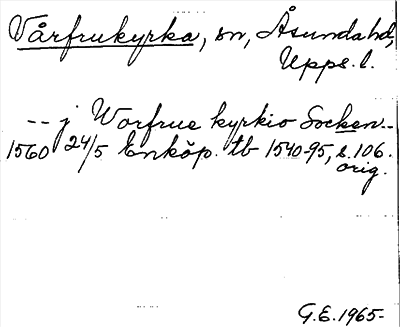 Vårfrukyrka, sn, Åsundahd,
Upps. l.
-- j Worfrue kyrkio Socken --
1560 24/5 Enköp. tb 1540-95, s. 106.
orig.
G.E. 1965-